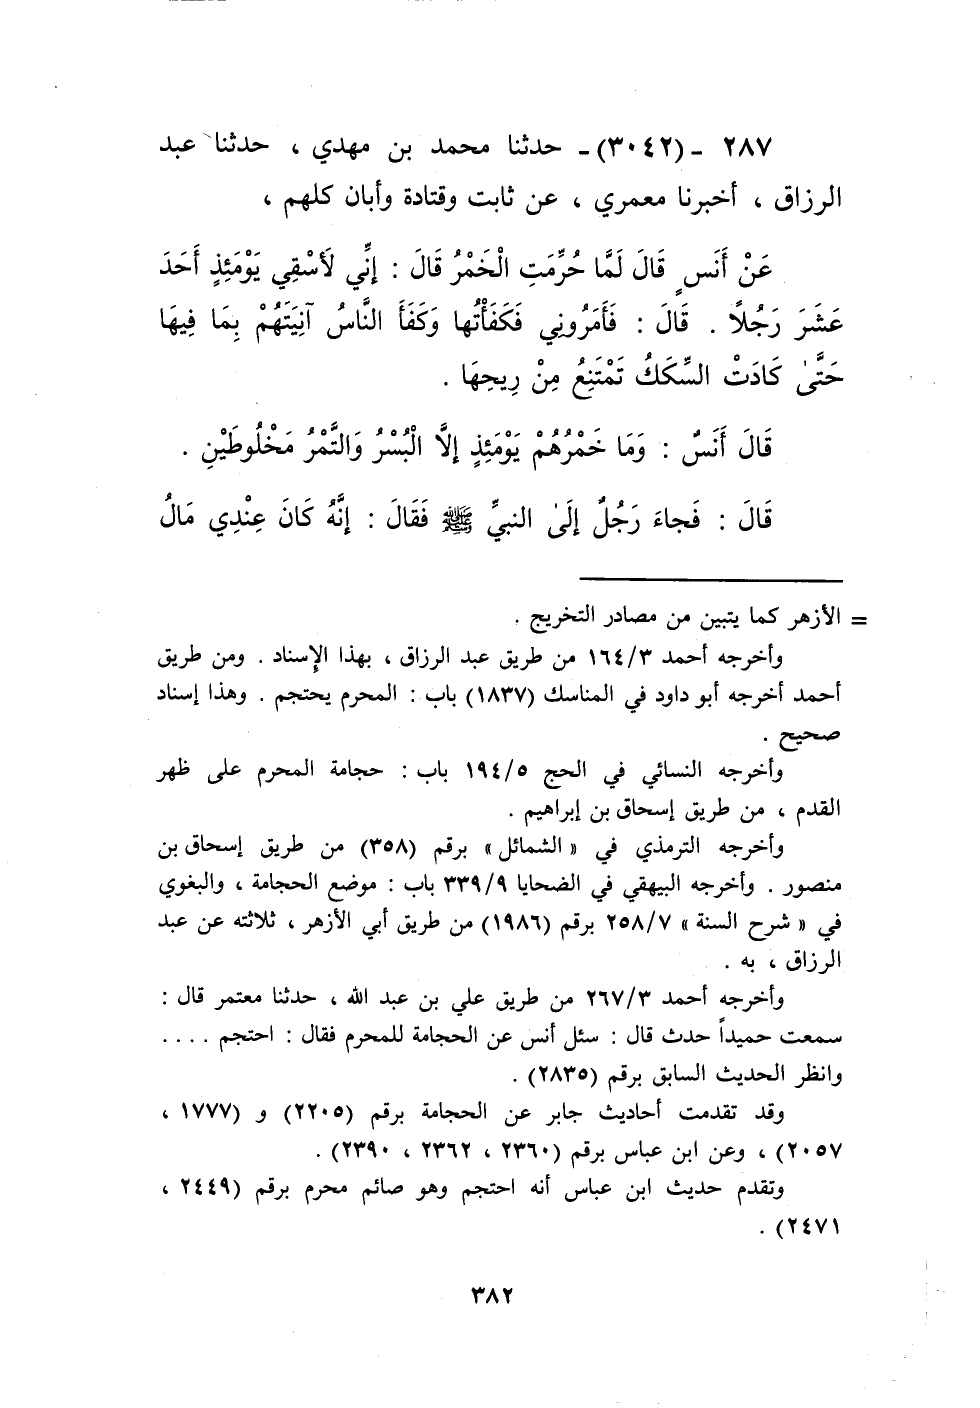 ٢٨٧ ـ (٣٠٤٢) ـ حدثنا محمد بن مهدي ، حدثنا عبد
الرزاق ، أخبرنا معمري ، عن ثابت وقتادة وأبان كلهم ،
عَنْ أَنَسٍ قَالَ لَمَّا حُرِّمَتِ الْخَمْرُ قَالَ : إِنِّي لَأَسْقِي يَوْمَئِذٍ أَحَدَ
عَشَرَ رَجُلًا . قَالَ : فَأَمَرُونِي فَكَفَأْتُها وَكَفَأَ النَّاسُ آنِيَتَهُمْ بِمَا فِيهَا
حَتَّىٰ كَادَتْ السِّكَكُ تَمْتَنِعُ مِنْ رِيحِهَا .
قَالَ أَنَسٌ : وَمَا خَمْرُهُمْ يَوْمَئِذٍ إلَّا الْبُسْرُ وَالتَّمْرُ مَخْلُوطَيْنِ .
قَالَ : فَجاءَ رَجُلٌ إِلَىٰ النبيِّ ﷺ فَقَالَ : إِنَّهُ كَانَ عِنْدِي مَالُ
= الأزهر كما يتبين من مصادر التخريج .
وأخرجه أحمد ١٦٤/٣ من طريق عبد الرزاق ، بهذا الإسناد . ومن طريق
أحمد أخرجه أبو داود في المناسك (١٨٣٧) باب : المحرم يحتجم . وهذا إسناد
صحيح .
وأخرجه النسائي في الحج ١٩٤/٥ باب : حجامة المحرم على ظهر
القدم ، من طريق إسحاق بن إبراهيم .
وأخرجه الترمذي في « الشمائل » برقم (٣٥٨) من طريق إسحاق بن
منصور . وأخرجه البيهقي في الضحايا ٣٣٩/٩ باب : موضع الحجامة ، والبغوي
في « شرح السنة » ٢٥٨/٧ برقم (١٩٨٦) من طريق أبي الأزهر ، ثلاثته عن عبد
الرزاق ، به .
وأخرجه أحمد ٢٦٧/٣ من طريق علي بن عبد الله ، حدثنا معتمر قال :
سمعت حميداً حدث قال : سئل أنس عن الحجامة للمحرم فقال : احتجم ....
وانظر الحديث السابق برقم (٢٨٣٥) .
وقد تقدمت أحاديث جابر عن الحجامة برقم (٢٢٠٥) و (١٧٧٧ ،
٢٠٥٧) ، وعن ابن عباس برقم (٢٣٦٠ ، ٢٣٦٢ ، ٢٣٩٠) .
وتقدم حديث ابن عباس أنه احتجم وهو صائم محرم برقم (٢٤٤٩ ،
٢٤٧١) .
٣٨٢